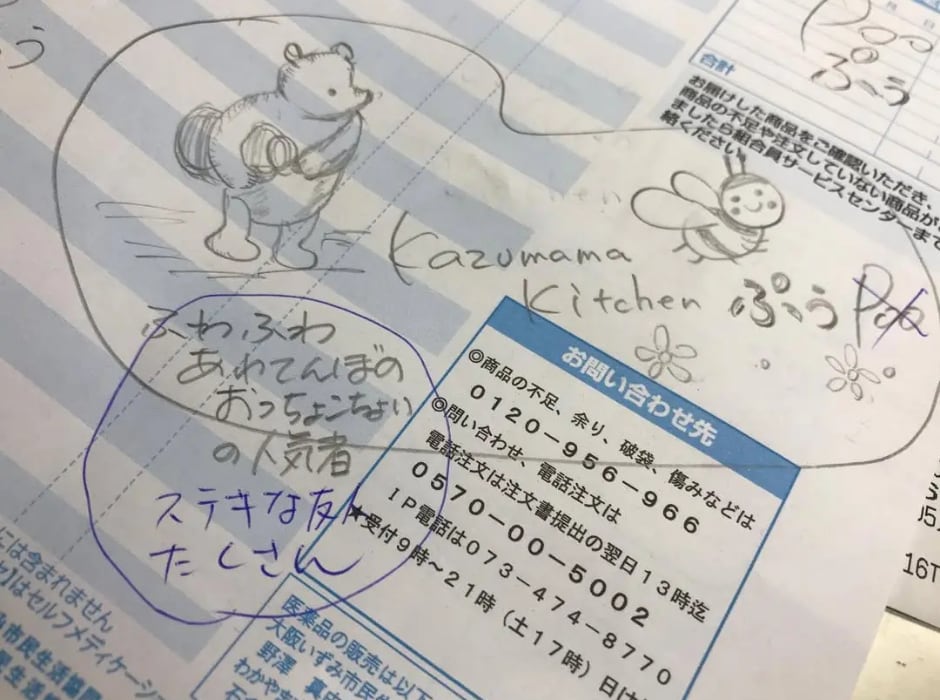 う
Poo
ぷぅ
月 日
合計
お届けした商品をご確認いただき、
商品の不足や注文していない商品が
ましたら組合員サービスセンターまで
絡ください。
Kazumama
Kitchen ぷぅ
ふわふわ
あわてんぼの
おっちょこちょい
の人気者
ステキな友人
たくさん
お問い合わせ先
◎商品の不足、余り、破袋、傷みなどは
0120-956-966
◎問い合わせ、電話注文は
電話注文は注文書提出の翌日13時迄
0570-00-5002
IP電話は073-474-8770
★受付9時～21時（土17時）日は
医薬品の販売は以下
大阪いずみ市民
野澤 真由
わかやま
には含まれません
はセルフメディケーシ
市民生活協同
16T